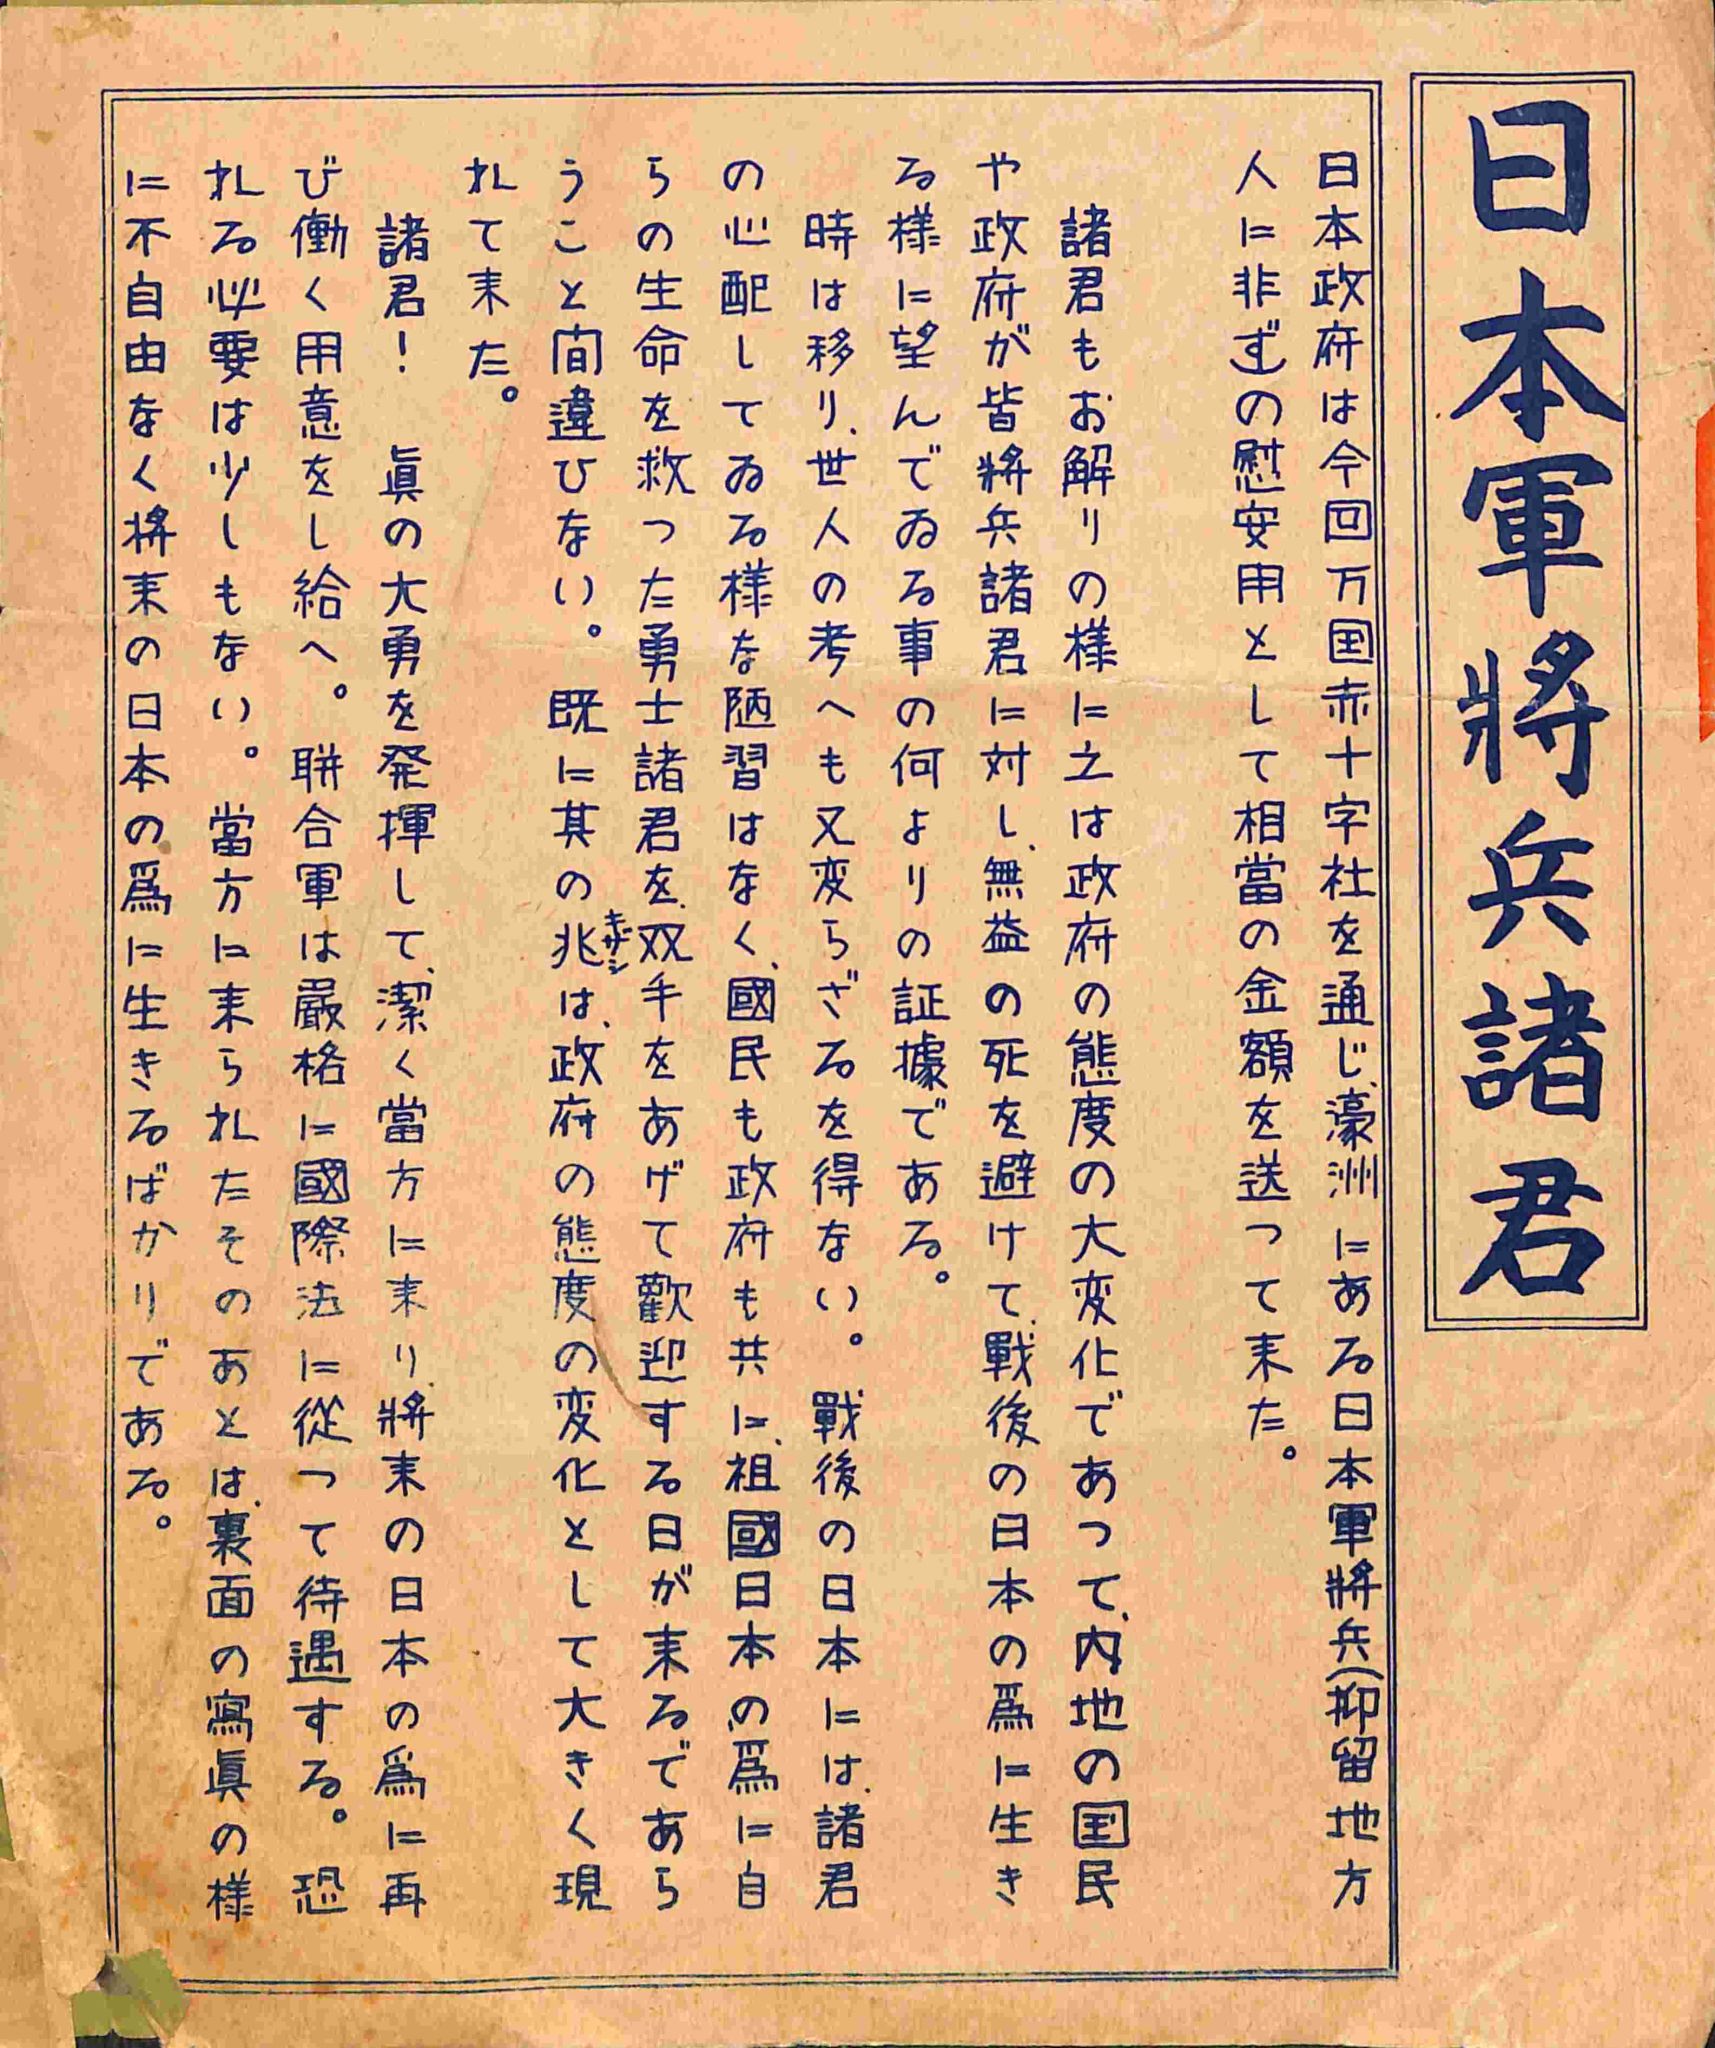 日本軍將兵諸君
日本政府は今回万国赤十字社を通じ、濠洲にある日本軍將兵(抑留地方
人に非ず)の慰安用として相當の金額を送って来た。
諸君もお解りの様に之は政府の態度の大変化であって、内地の国民
や政府が皆將兵諸君に対し、無益の死を避けて、戰後の日本の爲に生き
る様に望んでゐる事の何よりの証據である。
時は移り、世人の考へも又変らざるを得ない。戰後の日本には、諸君
の心配してゐる様な陋習はなく、國民も政府も共に、祖國日本の爲に自
らの生命を救った勇士諸君を、双手をあげて歡迎する日が来るであら
うこと間違ひない。既に其の兆キザシは、政府の態度の変化として大きく現
れて来た。
諸君!眞の大勇を発揮して、潔く當方に来り、將来の日本の爲に再
び働く用意をし給へ。聯合軍は嚴格に國際法に從って待遇する。恐
れる必要は少しもない。當方に来られたそのあとは、裏面の寫眞の様
に不自由なく將来の日本の爲に生きるばかりである。